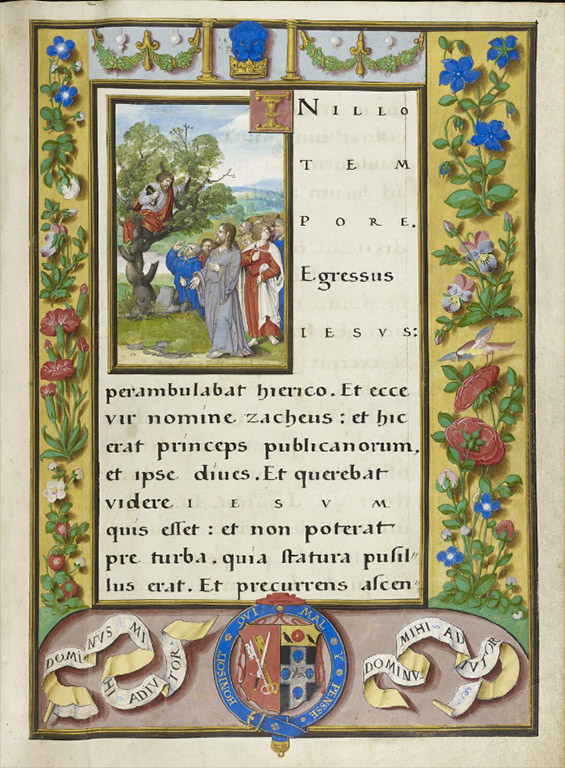 IN ILLO
TEM
PORE.
Egressus
IESVS:
perambulabat hierico. Et ecce
vir nomine zacheus: et hic
erat princeps publicanorum,
et ipse diues. Et querebat
videre IESVM
quis esset: et non poterat
pre turba, quia statura pusil"
lus erat. Et precurrens ascen"
DOMINVS MI
HI ADIVTOR
HONI SOIT QVI MAL Y PENSSE
DOMINVS
MIHI AD
VTOR